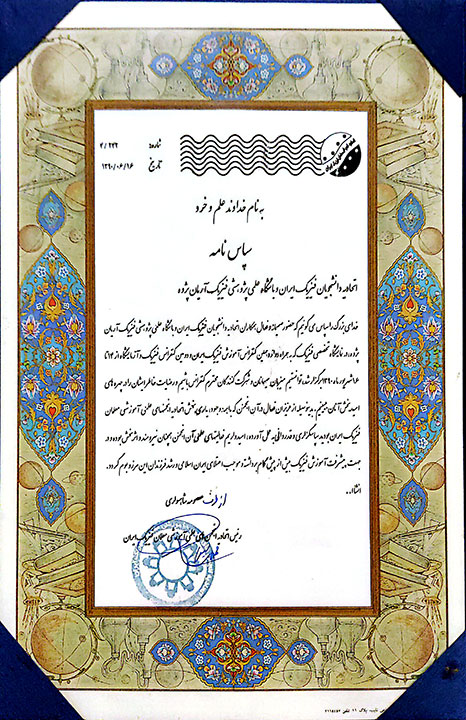 شماره: ۳/۲۲۲
تاریخ ۱۳۹۰/۰۶/۱۶
به نام خداوند علم و خرد
سپاس نامه
اتحادیه دانشجویان فیزیک ایران و باشگاه علمی پژوهشی فیزیک آریان پژوه
خدای بزرگ را سپاس می گوییم که حضور صمیمانه و فعال همکاران اتحادیه دانشجویان فیزیک ایران و باشگاه علمی پژوهشی فیزیک آریان
پژوه، در نمایشگاه تخصصی فیزیک که به همراه دوازدهمین کنفرانس آموزش فیزیک ایران و دومین کنفرانس فیزیک و آزمایشگاه از ۱۳ تا
۱۶ شهریور ماه ۱۳۹۰ برگزار شد، توانستیم میزبان میهمانان و شرکت کنندگان محترم کنفرانس باشیم و رضایت خاطرایشان را در چهره های
امید بخش آنان ببینیم. بدینوسیله از عزیزان فعال در آن انجمن که مایه وجود یاری بخش اتحادیه انجمنهای علمی آموزشی معلمان
فیزیک ایران بودید سپاسگزاری و قدردانی به عمل آورده، امیدواریم فعالیتهای علمی آن انجمن همچنان نیرومند و اثربخش بوده و در
جهت پیشرفت آموزش فیزیک بیش از پیش گام برداشته و موجب اعتلای ایران اسلامی و رشد فرزندان این مرز و بوم گردد.
انشاءا..
از طرف معصومه شاهسواری
رئیس اتحادیه انجمن های علمی آموزشی معلمان فیزیک ایران